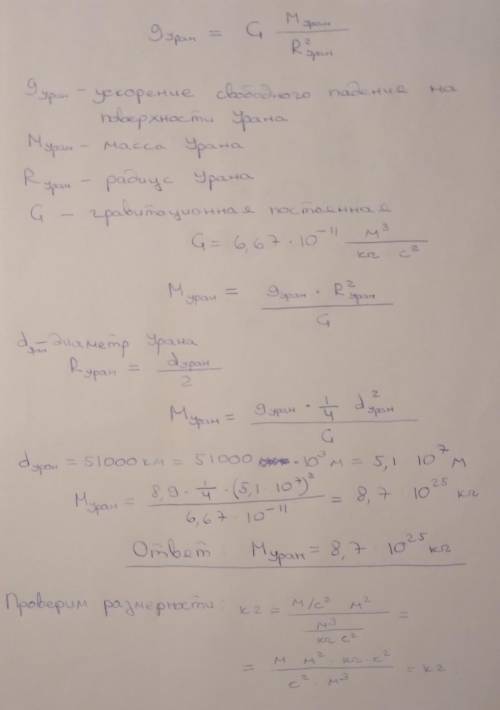 g уран = G M уран / R² уран
g уран – ускорение свободного падение на
поверхности Урана
M уран – масса Урана
R уран – радиус Урана
G – гравитационная постоянная
G = 6,67 · 10⁻¹¹ м³ / кг · с²
M уран = g уран · R² уран / G
d уран – диаметр Урана
R уран = d уран / 2
M уран = g уран · 1/4 d² уран / G
d уран = 51000 км = 51000 · 10³ м = 5,1 10⁷ м
M уран = 8,9 · 1/4 · (5,1 10⁷)² / 6,67 · 10⁻¹¹ = 8,7 10²⁵ кг
Ответ: M уран = 8,7 10²⁵ кг
Проверим размерности: кг = м/с² м² / м³ / кг с² =
= м м² · кг · с² / с² · м³ = кг